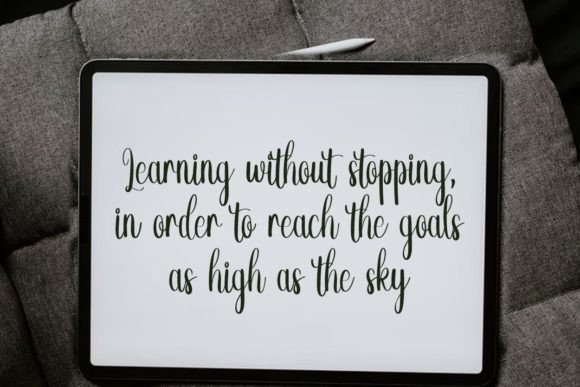 Learning without stopping,
in order to reach the goals
as high as the sky